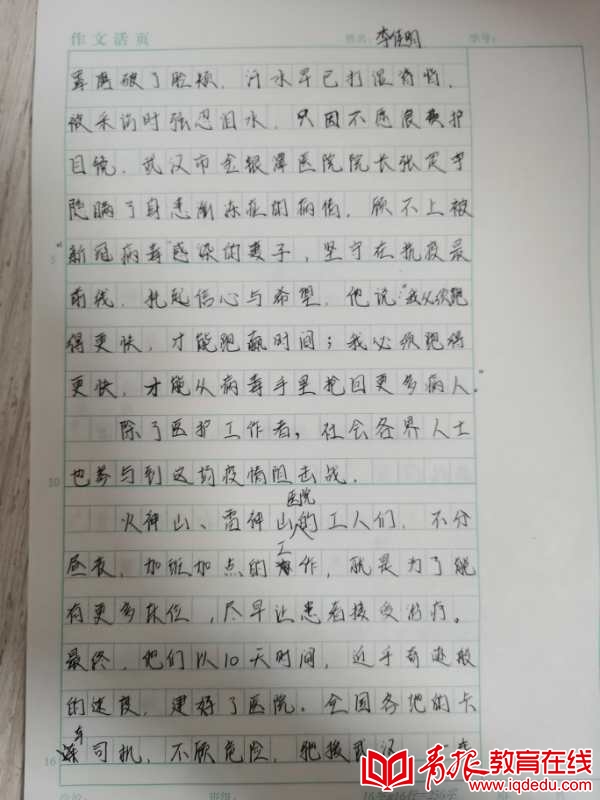 作文活页 姓名: 李佳明 学号:
磨破了脸颊,汗水早已打湿
被采访时强忍泪水,只因不愿浪费护
目镜,武汉市金银潭医院院长张定宇
隐瞒了身患渐冻症的病情,顾不上被
“新冠病毒”感染的妻子,坚守在抗疫最
前线,托起信心与希望,他说:“我必须跑
得更快,才能跑赢时间;我必须跑得
更快,才能从病毒手里抢回更多病人。”
除了医护工作者,社会各界人士
也参与到这场疫情阻击战。
火神山、雷神山医院的工人们,不分
昼夜,加班加点的工作,就是为了能
有更多床位,尽早让患者接受治疗。
最终,他们以10天时间,近乎奇迹般
的速度,建好了医院。全国各地的卡
车司机,不顾危险,驰援武汉
5
10
16
青报教育在线
www.iqdedu.com